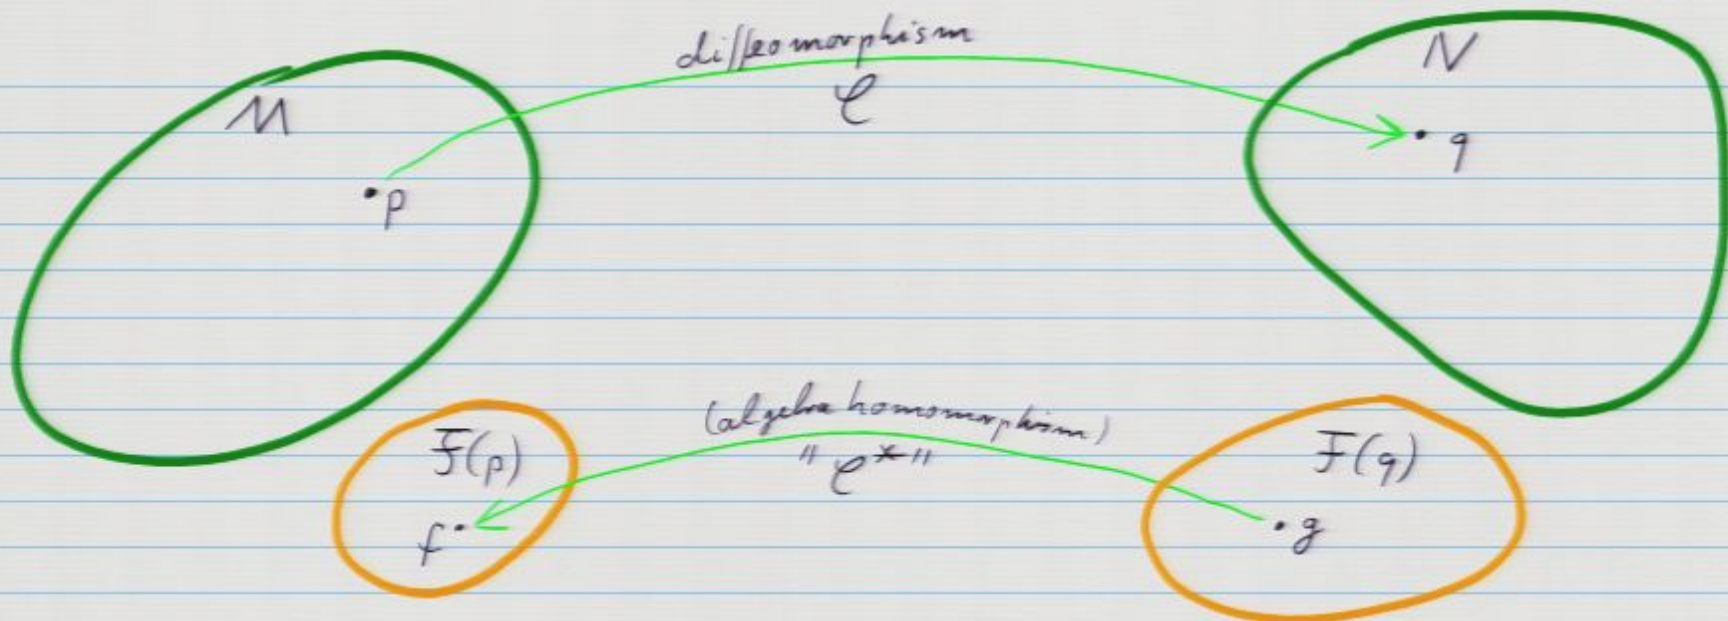 diffeomorphism
φ
M
N
• p
• q
(algebra homomorphism)
"φ*"
F(p)
F(q)
f •
• g